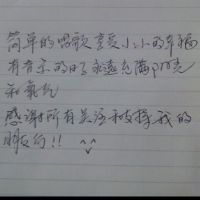 简单的唱歌 享受小小的幸福
有音乐的日子永远充满阳光
和氧气
感谢所有关注和支持我的
朋友们!!